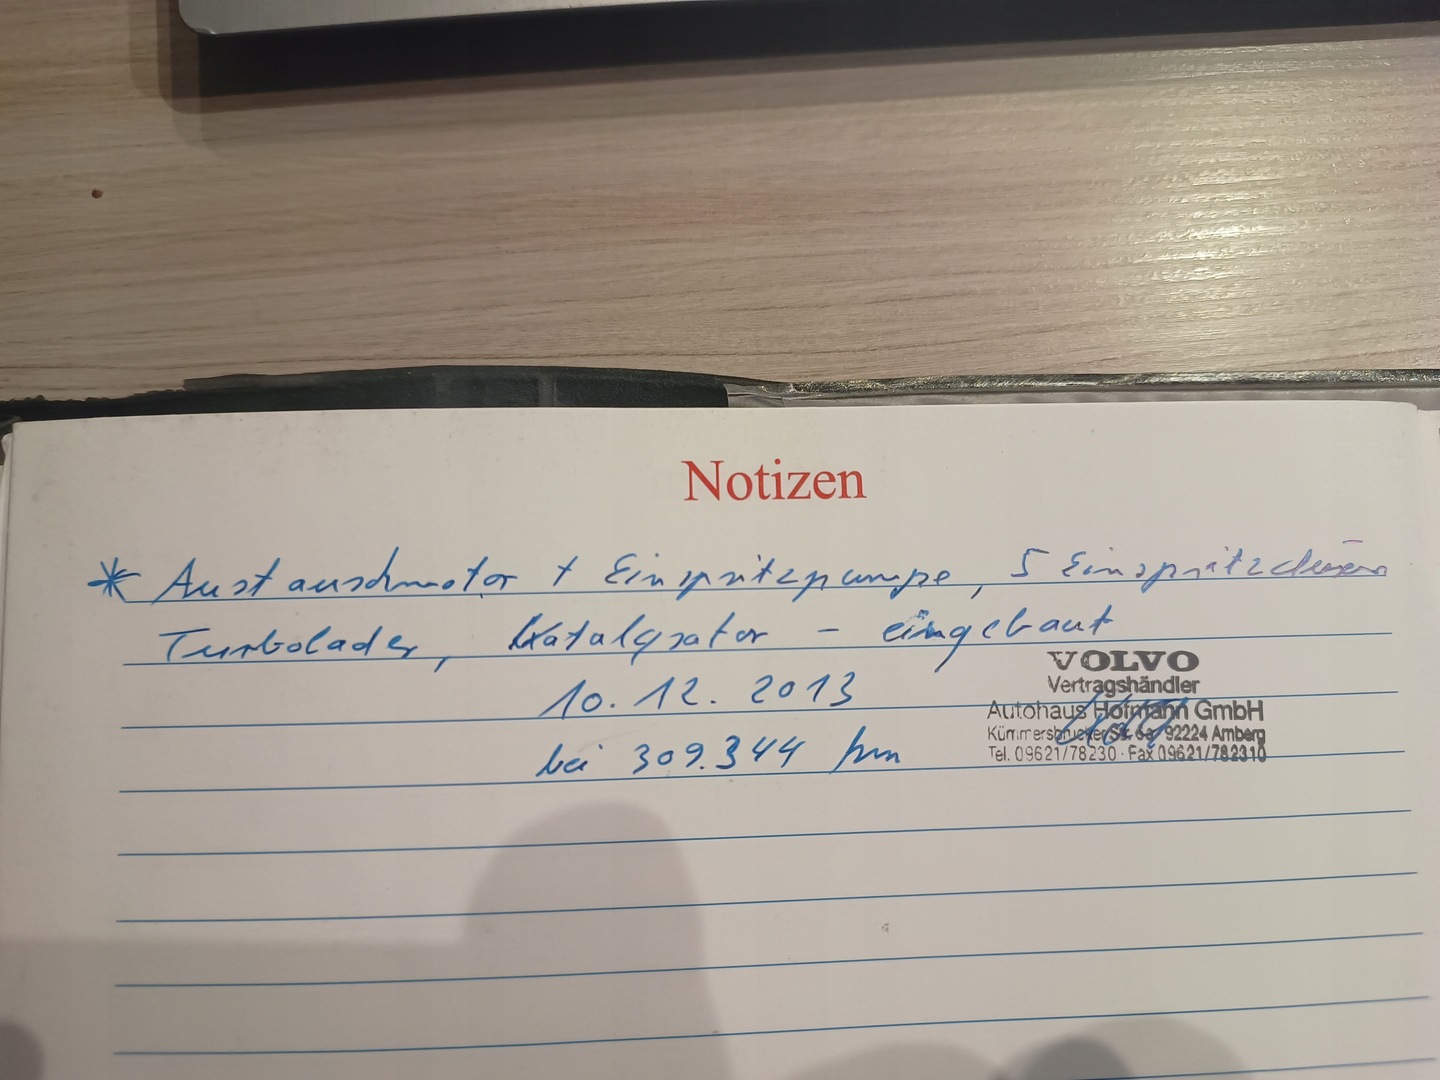 Notizen
* Austauschmotor + Einspritzpumpe, 5 Einspritzdüsen
Turbolader, Katalysator - eingebaut
10.12.2013
bei 309.344 km
VOLVO
Vertragshändler
Autohaus Hofmann GmbH
Kümmersbrucker Str. 6a, 92224 Amberg
Tel. 09621/78230 · Fax 09621/782310